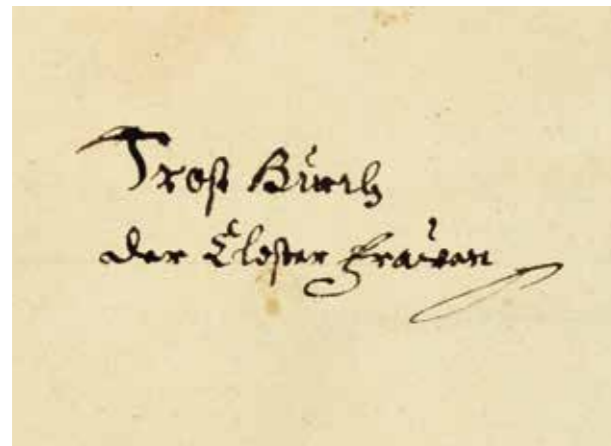 Trost Buech
der Closter frauen